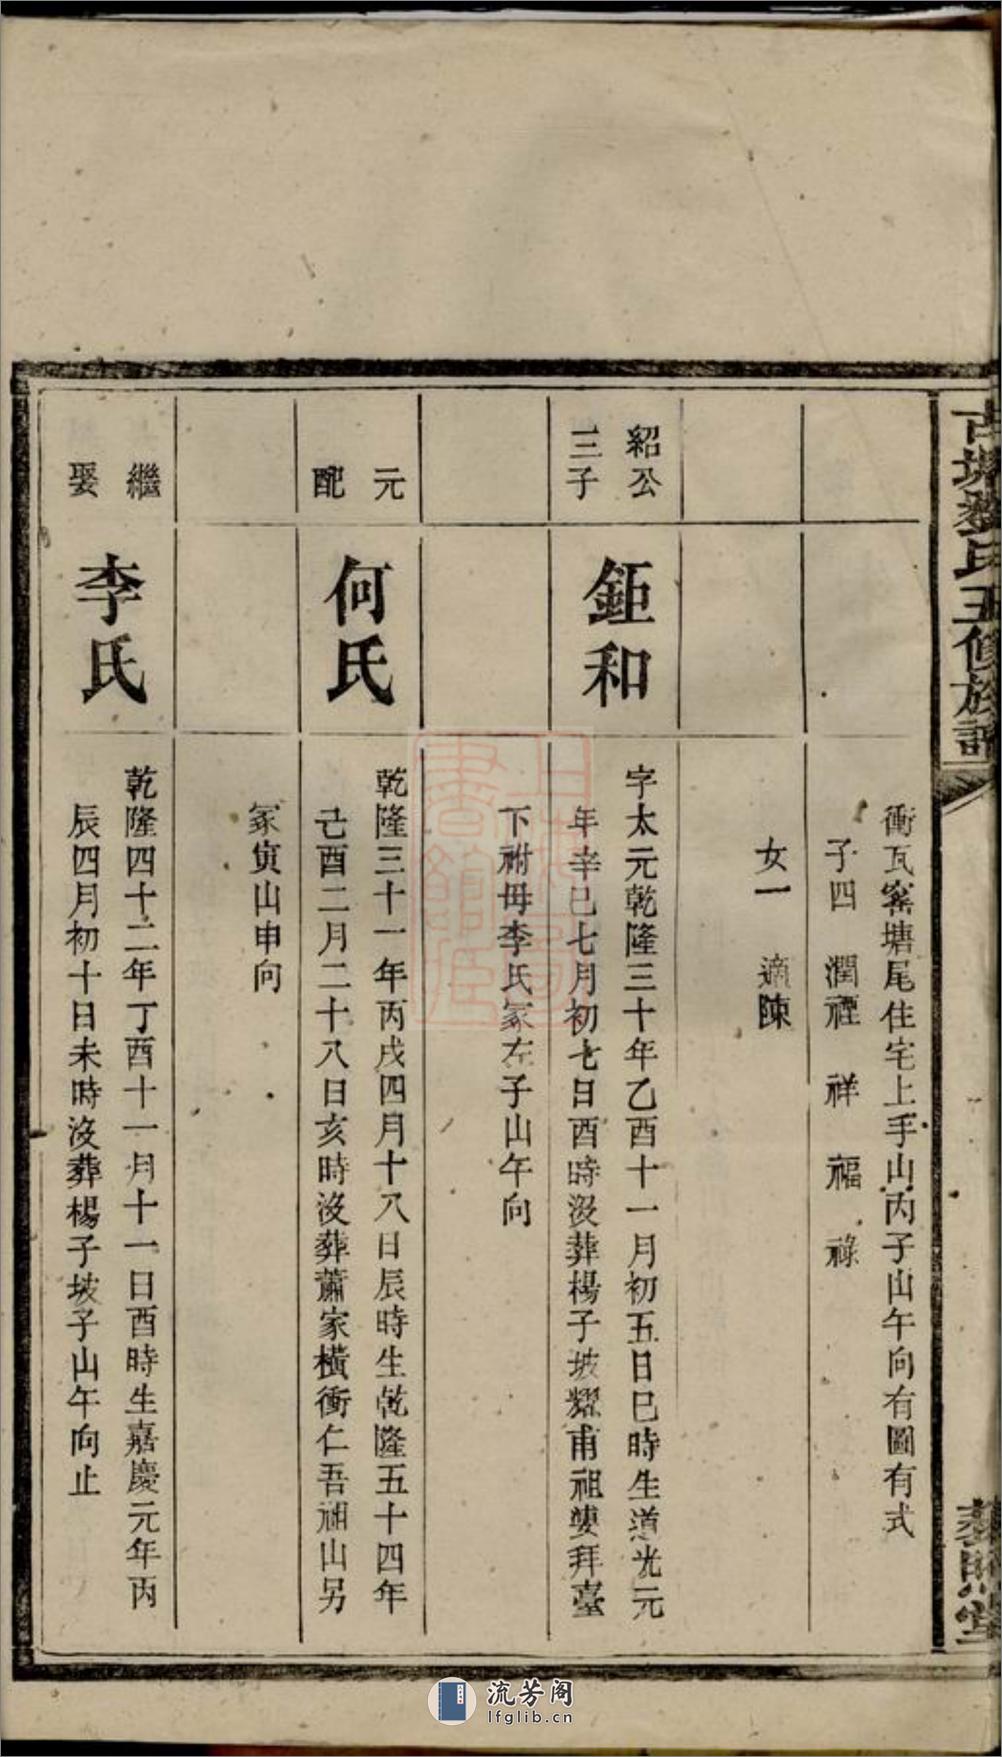 衝瓦窰塘尾住宅上手山丙子山午向有圖有式
子四 潤禋 祥 福 祿
女一 適陳
紹公
三子
鉅和
字太元乾隆三十年乙酉十一月初五日巳時生道光元
年辛巳七月初七日酉時沒葬楊子坡耀甫祖墓拜臺
下祔母李氏冢左子山午向
元
配
何氏
乾隆三十一年丙戌四月十八日辰時生乾隆五十四年
己酉二月二十八日亥時沒葬蕭家橫衝仁吾祖山另
冢寅山申向
繼
娶
李氏
乾隆四十二年丁酉十一月十一日酉時生嘉慶元年丙
辰四月初十日未時沒葬楊子坡子山午向止
氏五修族譜
堂
上海圖書館藏
流芳阁
lfglib.cn